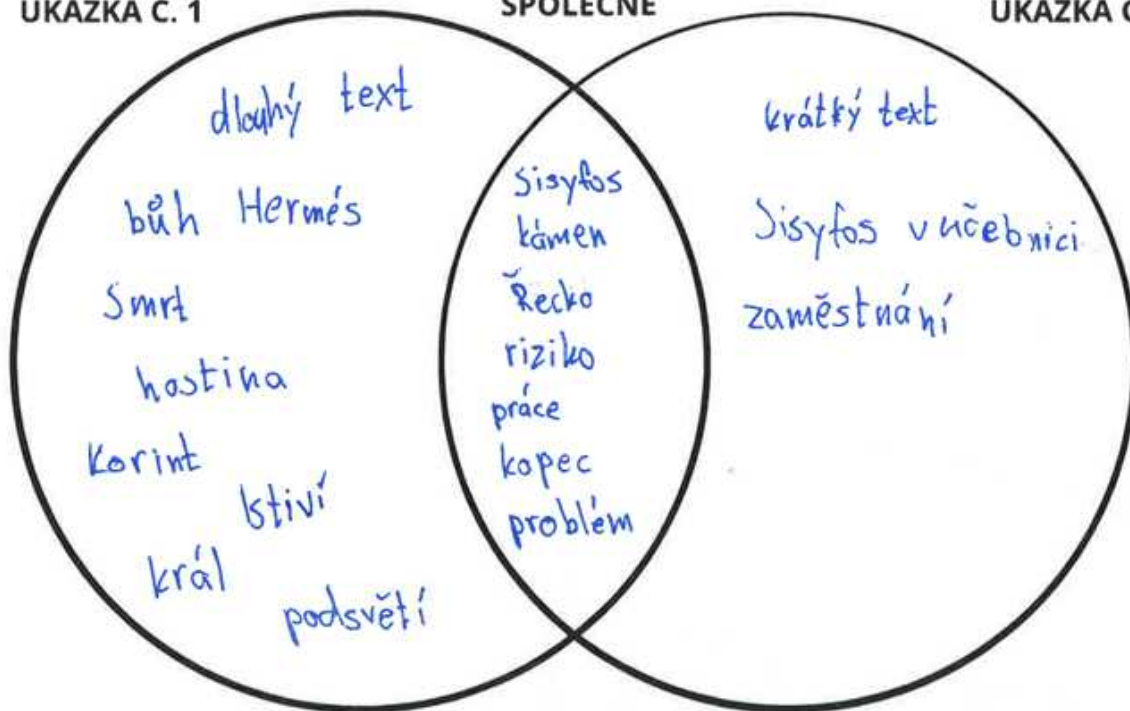 UKÁZKA Č. 1
SPOLEČNÉ
UKÁZKA Č
dlouhý text
bůh Hermés
Smrt
hostina
Korint
lstiví
král
podsvětí
Sisyfos
kámen
Řecko
riziko
práce
kopec
problém
krátký text
Sisyfos v učebnici
zaměstnání